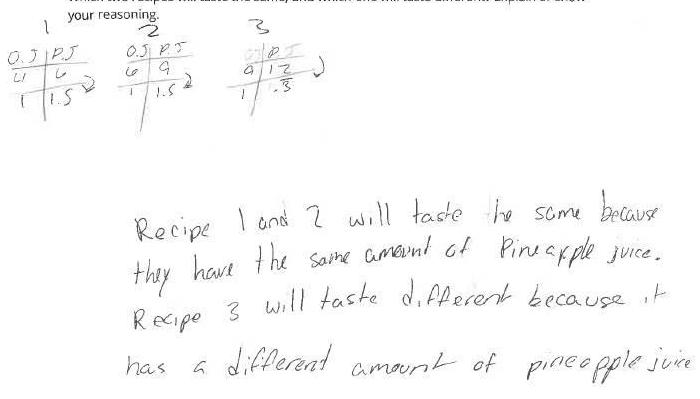 your reasoning.
1 2 3
O.J P.J O.J P.J O.J P.J
4 6 6 9 9 12
1 1.5 1 1.5 1 .3
Recipe 1 and 2 will taste the same because
they have the same amount of Pineapple juice.
Recipe 3 will taste different because it
has a different amount of pineapple juice